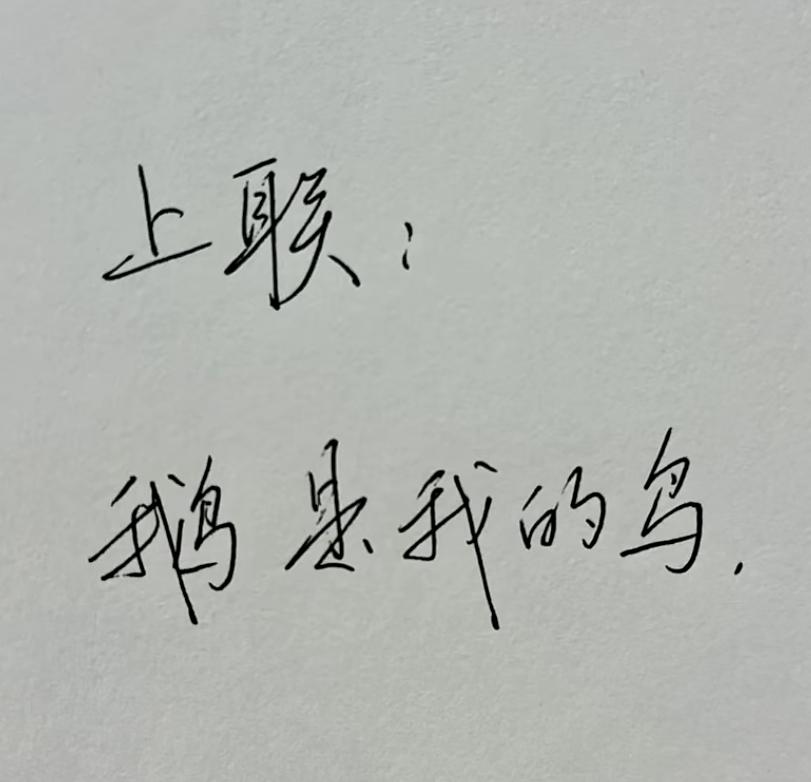 上联：
鹅是我的鸟.